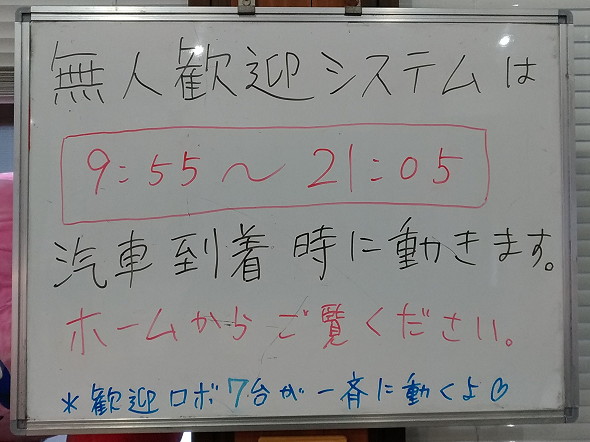 無人歓迎システムは
9:55〜21:05
汽車到着時に動きます。
ホームからご覧ください。
*歓迎ロボ7台が一斉に動くよ♡